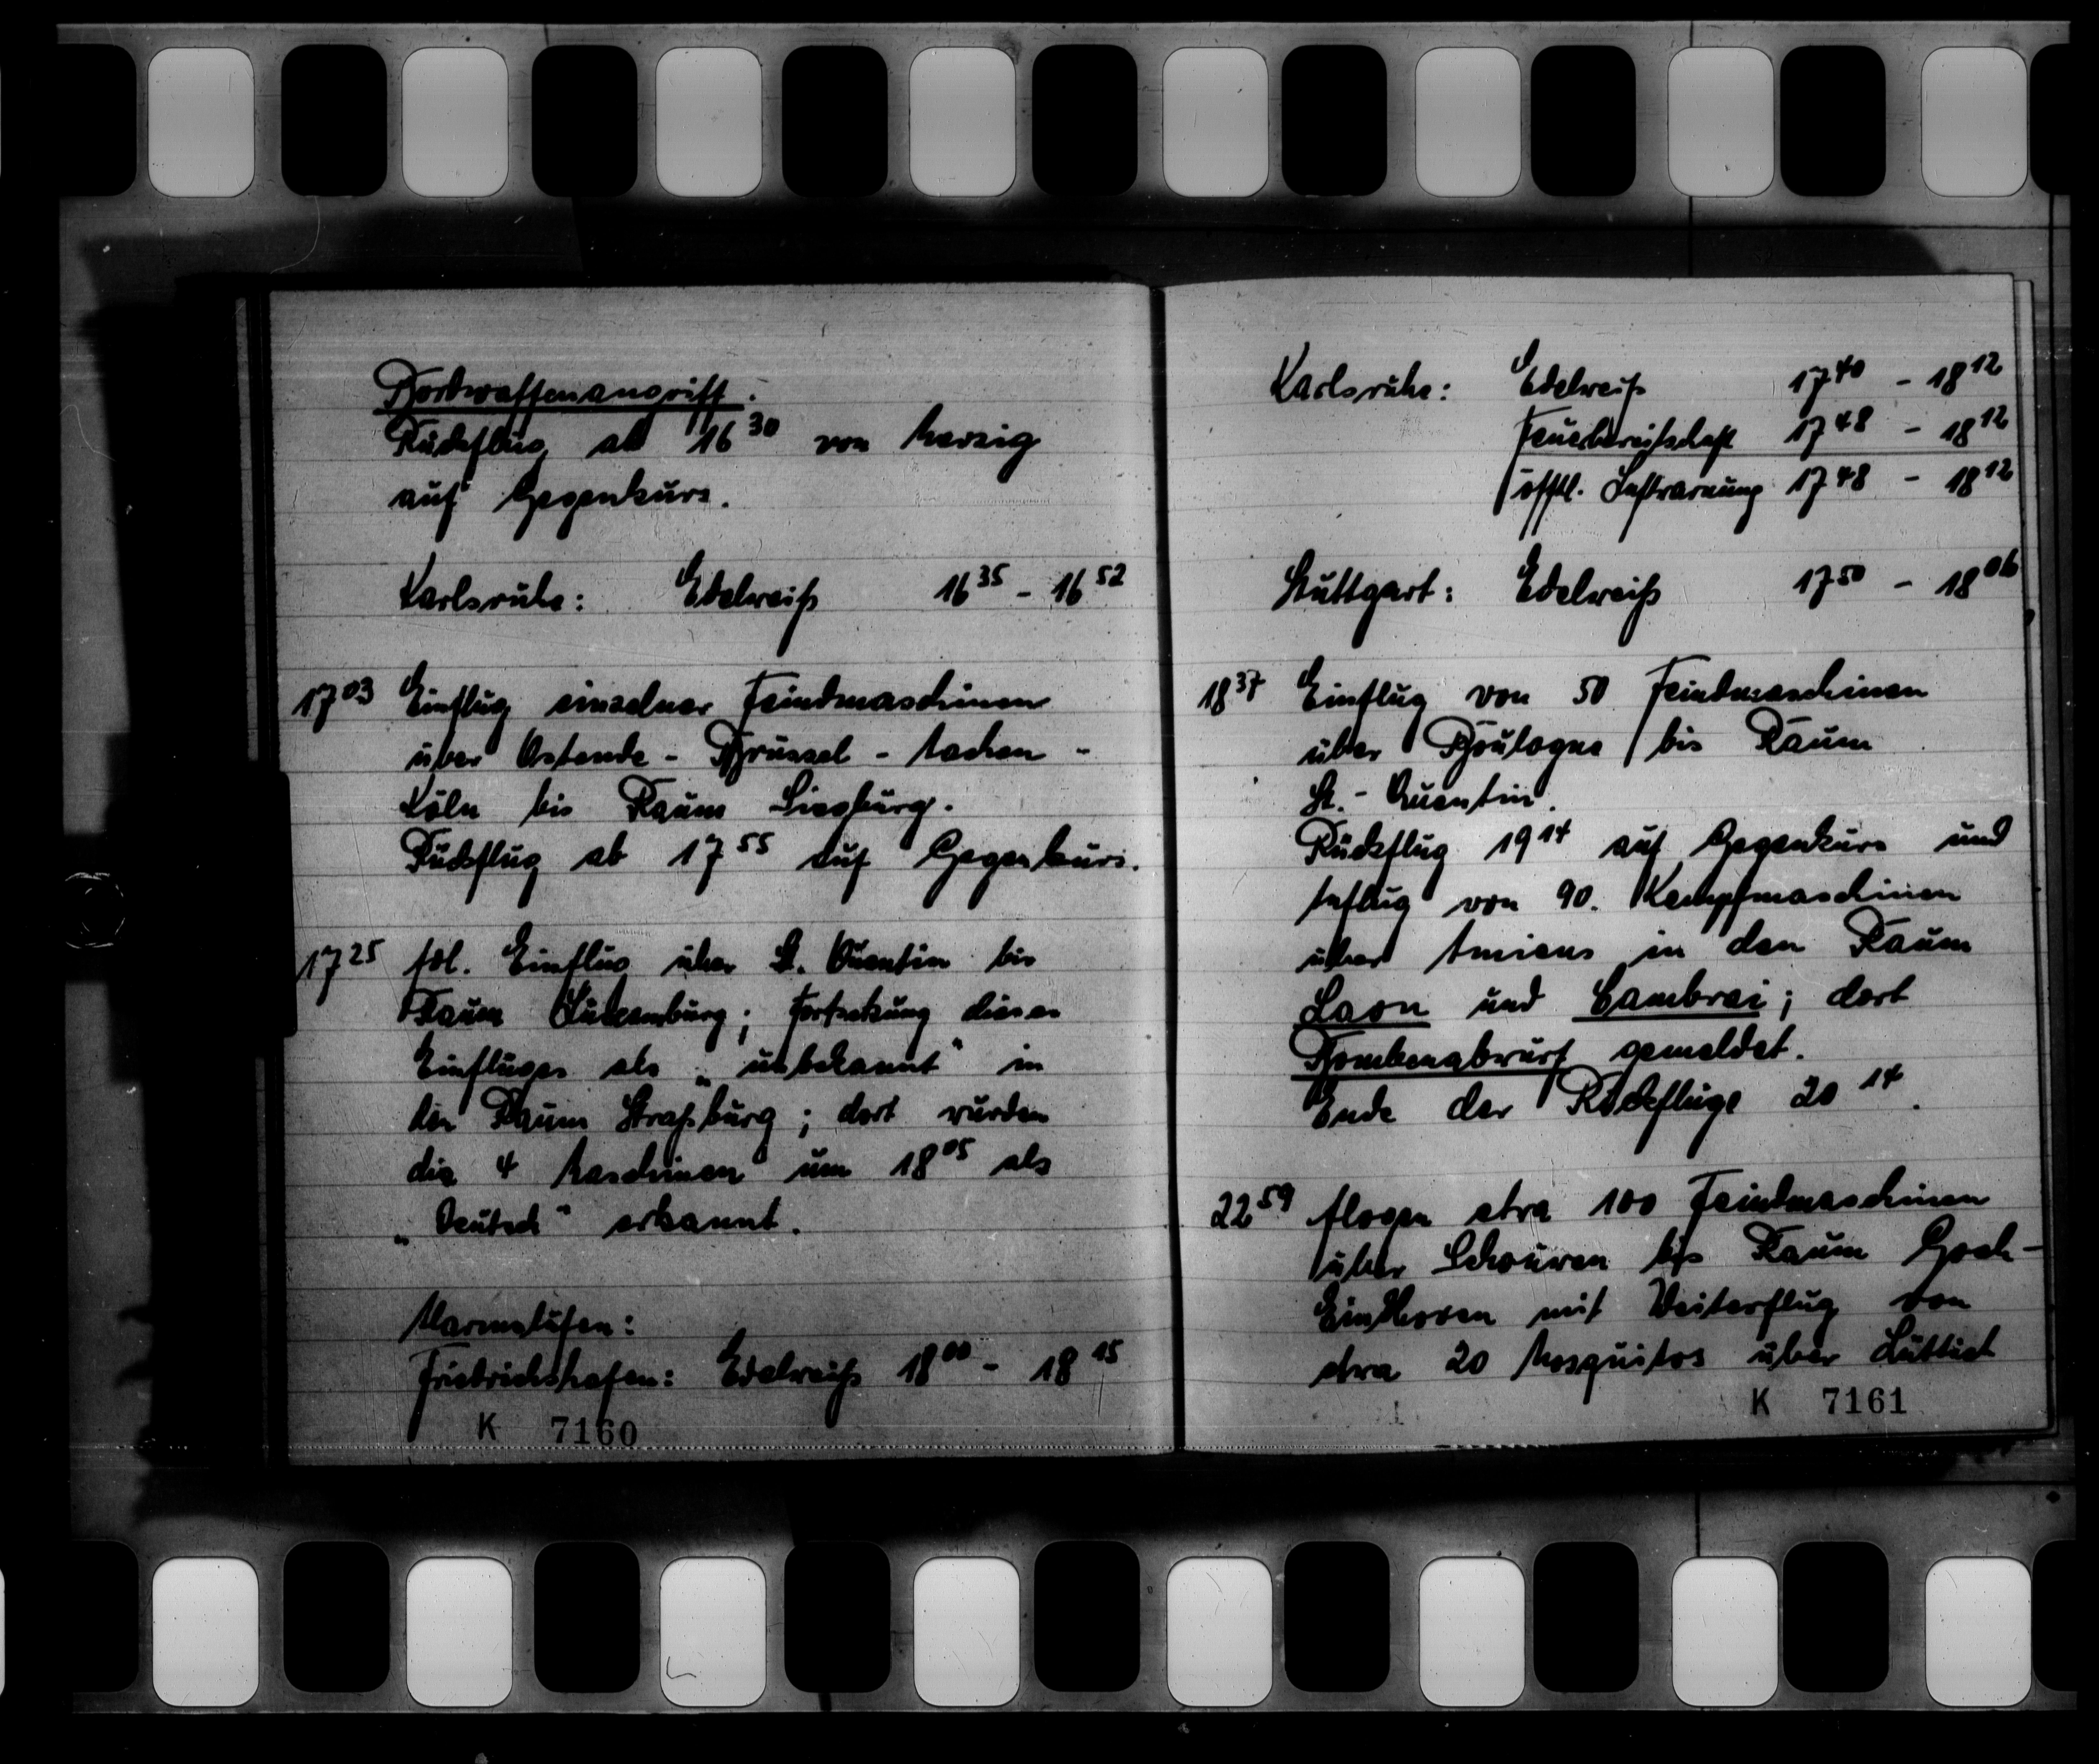 Bordwaffenangriff.
Rückflug ab 16 30 von Merzig
auf Gegenkurs.
Karlsruhe: Edelweiß 16 35 - 16 52
17 03 Einflug einzelner Feindmaschinen
über Ostende - Brüssel - Aachen -
Köln bis Raum Siegburg.
Rückflug ab 17 55 auf Gegenkurs.
17 25 Einflug über St. Quentin bis
Raum Luxemburg; Fortsetzung dieses
Einfluges als „unbekannt" in
den Raum Straßburg; dort wurden
die 4 Maschinen um 18 05 als
„Deutsch" erkannt.
Warnstufen:
Friedrichshafen: Edelweiß 18 00 - 18 15
K 7160
Karlsruhe: Edelweiß 17 40 - 18 12
Feuerbereitschaft 17 48 - 18 12
öfftl. Luftwarnung 17 48 - 18 12
Stuttgart: Edelweiß 17 50 - 18 06
18 37 Einflug von 50 Feindmaschinen
über Boulogne bis Raum
St.- Quentin.
Rückflug 19 14 auf Gegenkurs und
Anflug von 90. Kampfmaschinen
über Amiens in den Raum
Laon und Cambrai; dort
Bombenabwurf gemeldet.
Ende der Rückflüge 20 14.
22 59 flogen etwa 100 Feindmaschinen
über Schouwen bis Raum Goch -
Eindhoven mit Weiterflug von
etwa 20 Mosquitos über Lüttich
K 7161